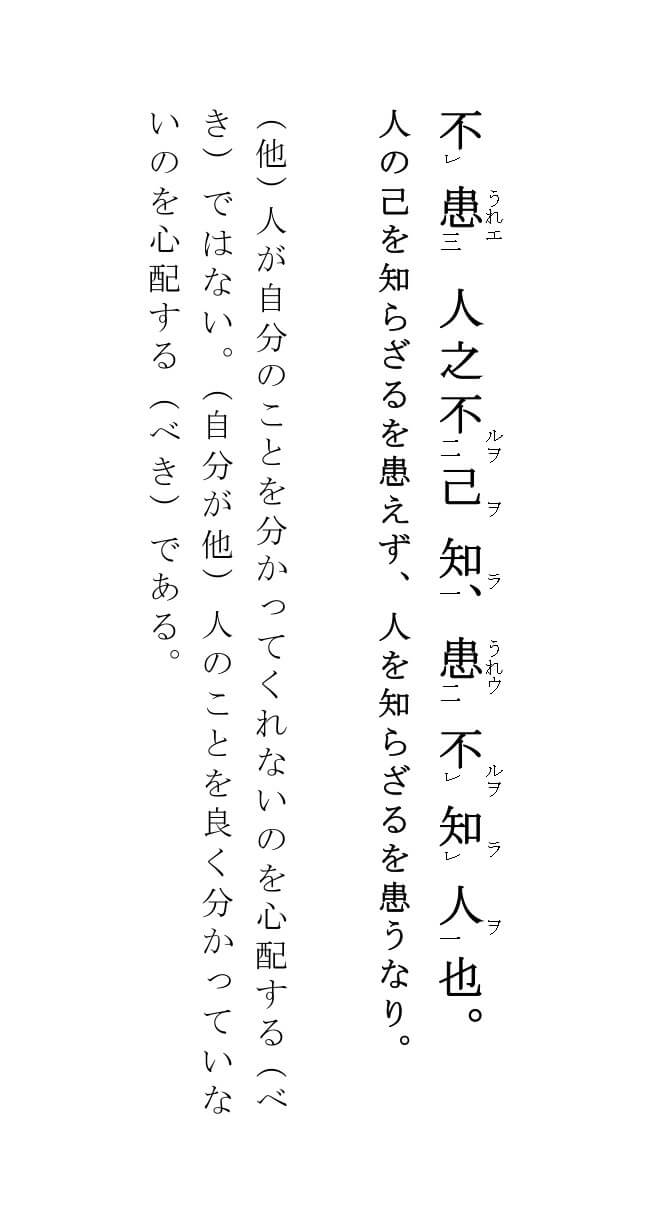 不レ患うれエ三人之不ルヲ二己ヲ知ラ一、患うれウ二不ルヲレ知ラレ人ヲ一也。
人の己を知らざるを患えず、人を知らざるを患うなり。
（他）人が自分のことを分かってくれないのを心配する（べ
き）ではない。（自分が他）人のことを良く分かっていな
いのを心配する（べき）である。